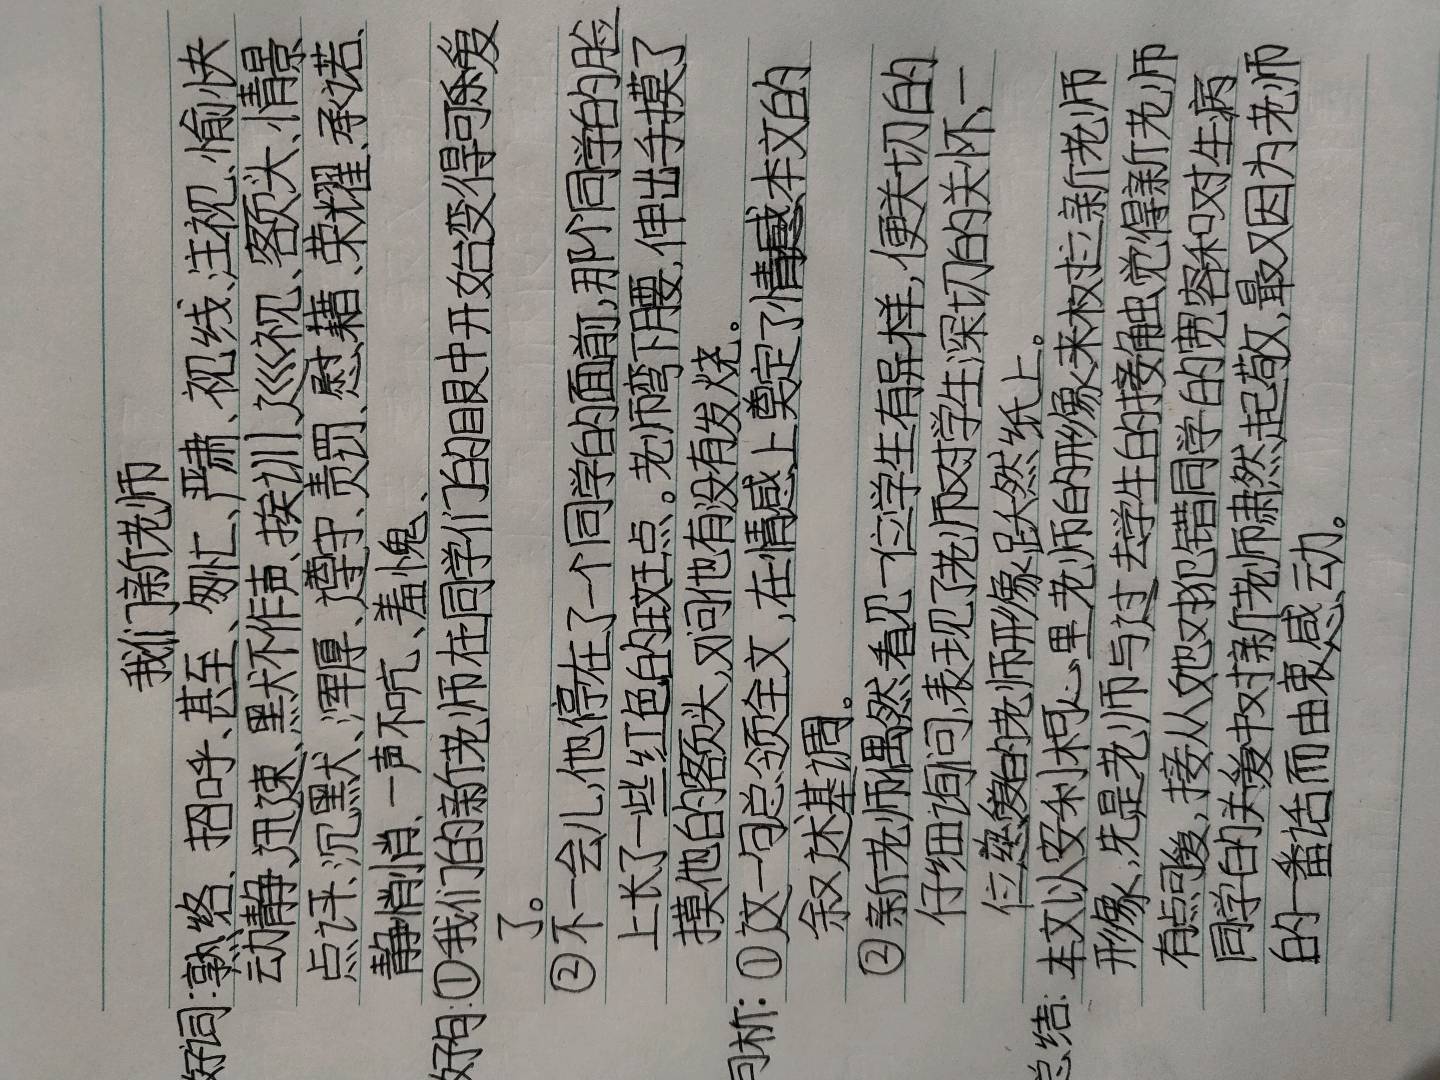 我们新老师
好词:熟络、招呼、甚至、匆忙、严肃、视线、注视、愉快
动静、迅速、默不作声、挨训、巡视、额头、情景、
点评、沉默、浑厚、遵守、责罚、慰藉、荣耀、承诺、
静悄悄、一声不吭、羞愧、
好句:①我们的新老师在同学们的眼中开始变得可爱
了。
②不一会儿,他停在了一个同学的面前,那个同学的脸
上长了一些红色的斑点。老师弯下腰,伸出手摸了
摸他的额头,对问他有没有发烧。
句析:①这一句总领全文,在情感上奠定了情感本文的
叙述基调。
②新老师偶然看见一位学生有异样,便关切的
仔细询问,表现了老师对学生深切的关怀,一
位慈爱的老师形像跃然纸上。
总结:本文以安利柯心里老师的形像来树立新老师
形像,先是老师与过去学生的接触觉得新老师
有点可爱,接从她对犯错同学的宽容和对生病
同学的关爱中对新老师肃然起敬,最又因为老师
的一番话而由衷感动。